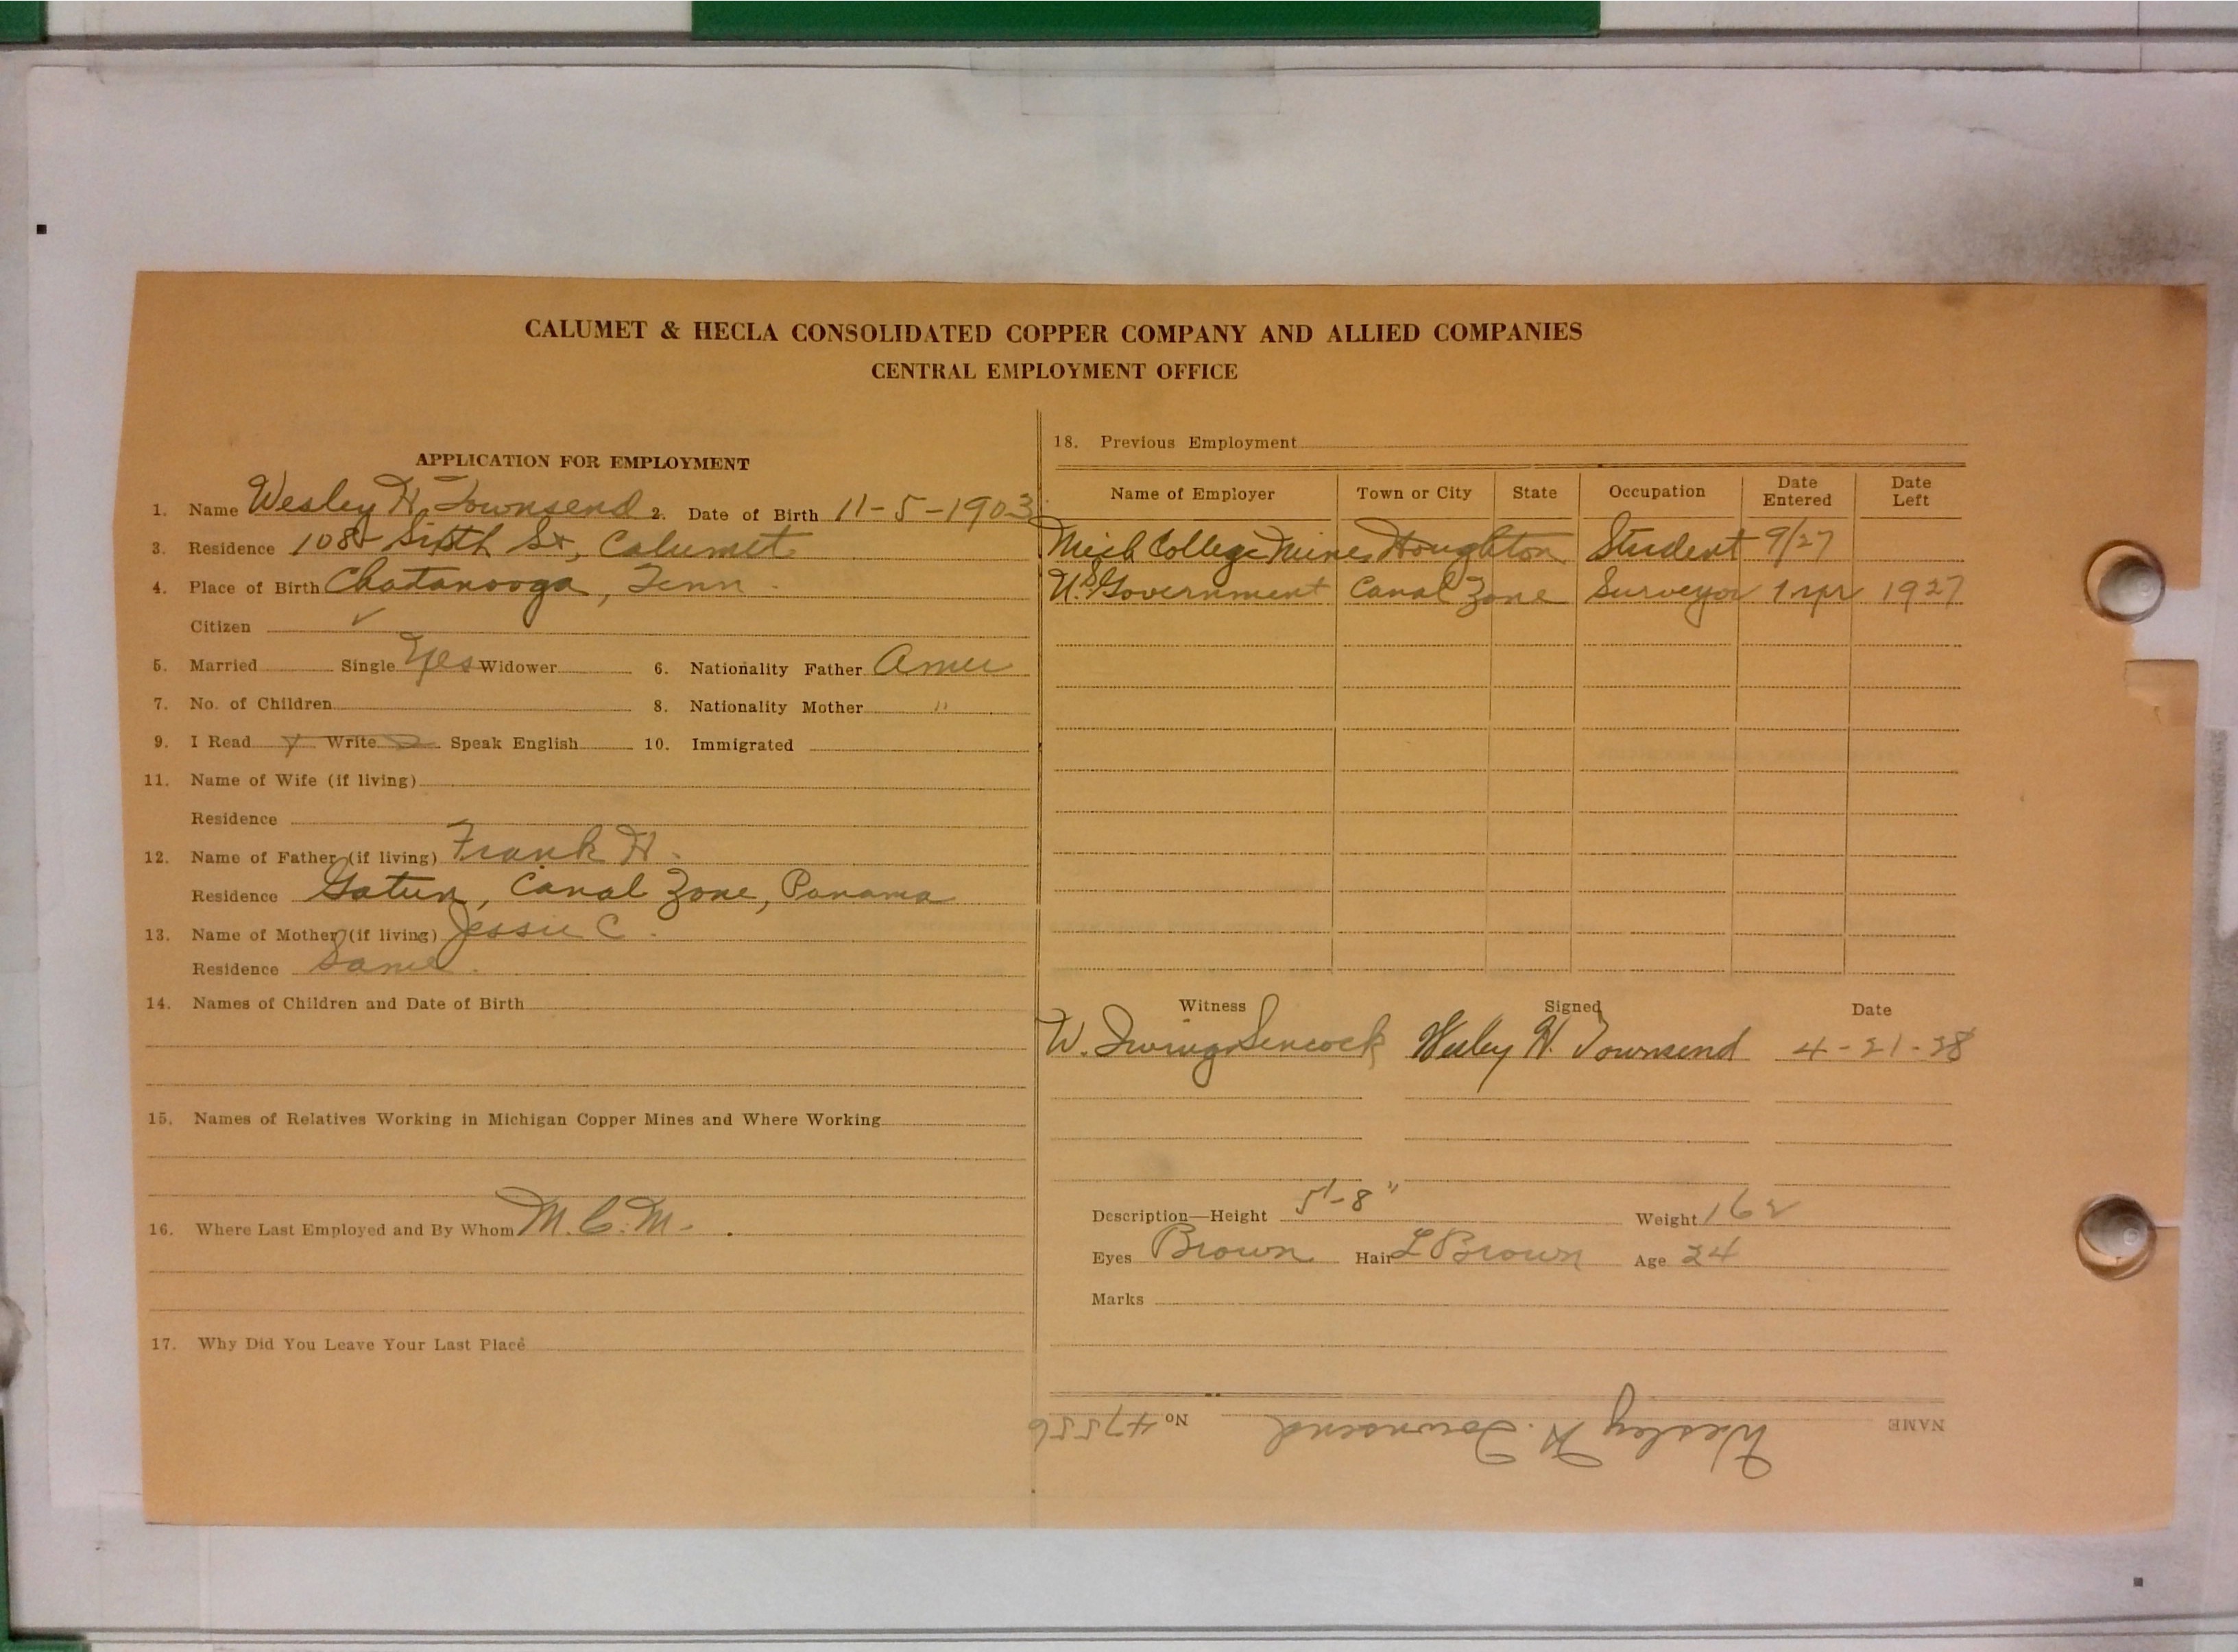 CALUMET & HECLA CONSOLIDATED COPPER COMPANY AND ALLIED COMPANIES
CENTRAL EMPLOYMENT OFFICE
APPLICATION FOR EMPLOYMENT
1. Name Wesley H. Townsend 2. Date of Birth 11-5-1903
3. Residence Sixth St, Calumet
4. Place of Birth Chatanooga, Tenn.
Citizen ✓
5. Married Single Yes Widower 6. Nationality Father Amer
7. No. of Children 8. Nationality Mother "
9. I Read Write Speak English 10. Immigrated
11. Name of Wife (if living)
Residence
12. Name of Father (if living) Frank H.
Residence Gatun, Canal Zone, Panama
13. Name of Mother (if living) Jessie C.
Residence Same.
14. Names of Children and Date of Birth
15. Names of Relatives Working in Michigan Copper Mines and Where Working
16. Where Last Employed and By Whom M.C.M.
17. Why Did You Leave Your Last Place
18. Previous Employment
Name of Employer Town or City State Occupation Date Entered Date Left
Mich College Mines Houghton Student 9/27
U.S. Government Canal Zone Surveyor 1 yr 1927
Witness Signed Date
W. Irving Wesley H. Townsend 4-21-28
Description—Height 5'-8" Weight 162
Eyes Brown Hair L Brown Age 24
Marks
NAME Wesley H. Townsend No 47556